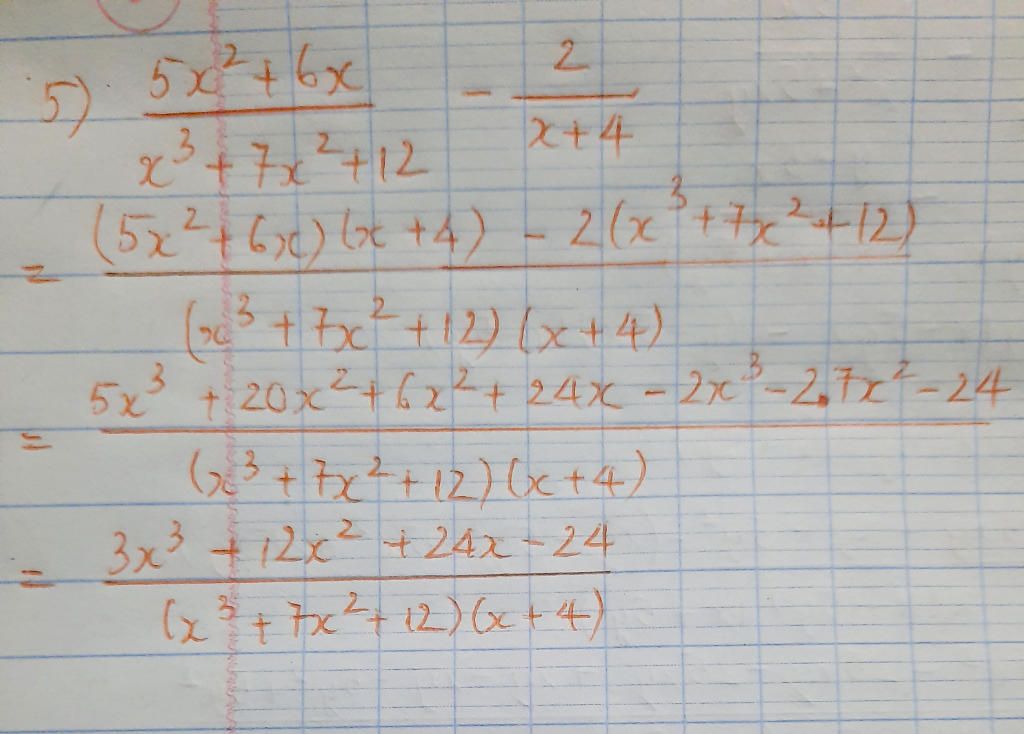 5) (5x² + 6x)/(x³ + 7x² + 12) - 2/(x + 4)
= ((5x² + 6x)(x + 4) - 2(x³ + 7x² + 12))/((x³ + 7x² + 12)(x + 4))
= (5x³ + 20x² + 6x² + 24x - 2x³ - 2.7x² - 24)/((x³ + 7x² + 12)(x + 4))
= (3x³ + 12x² + 24x - 24)/((x³ + 7x² + 12)(x + 4))